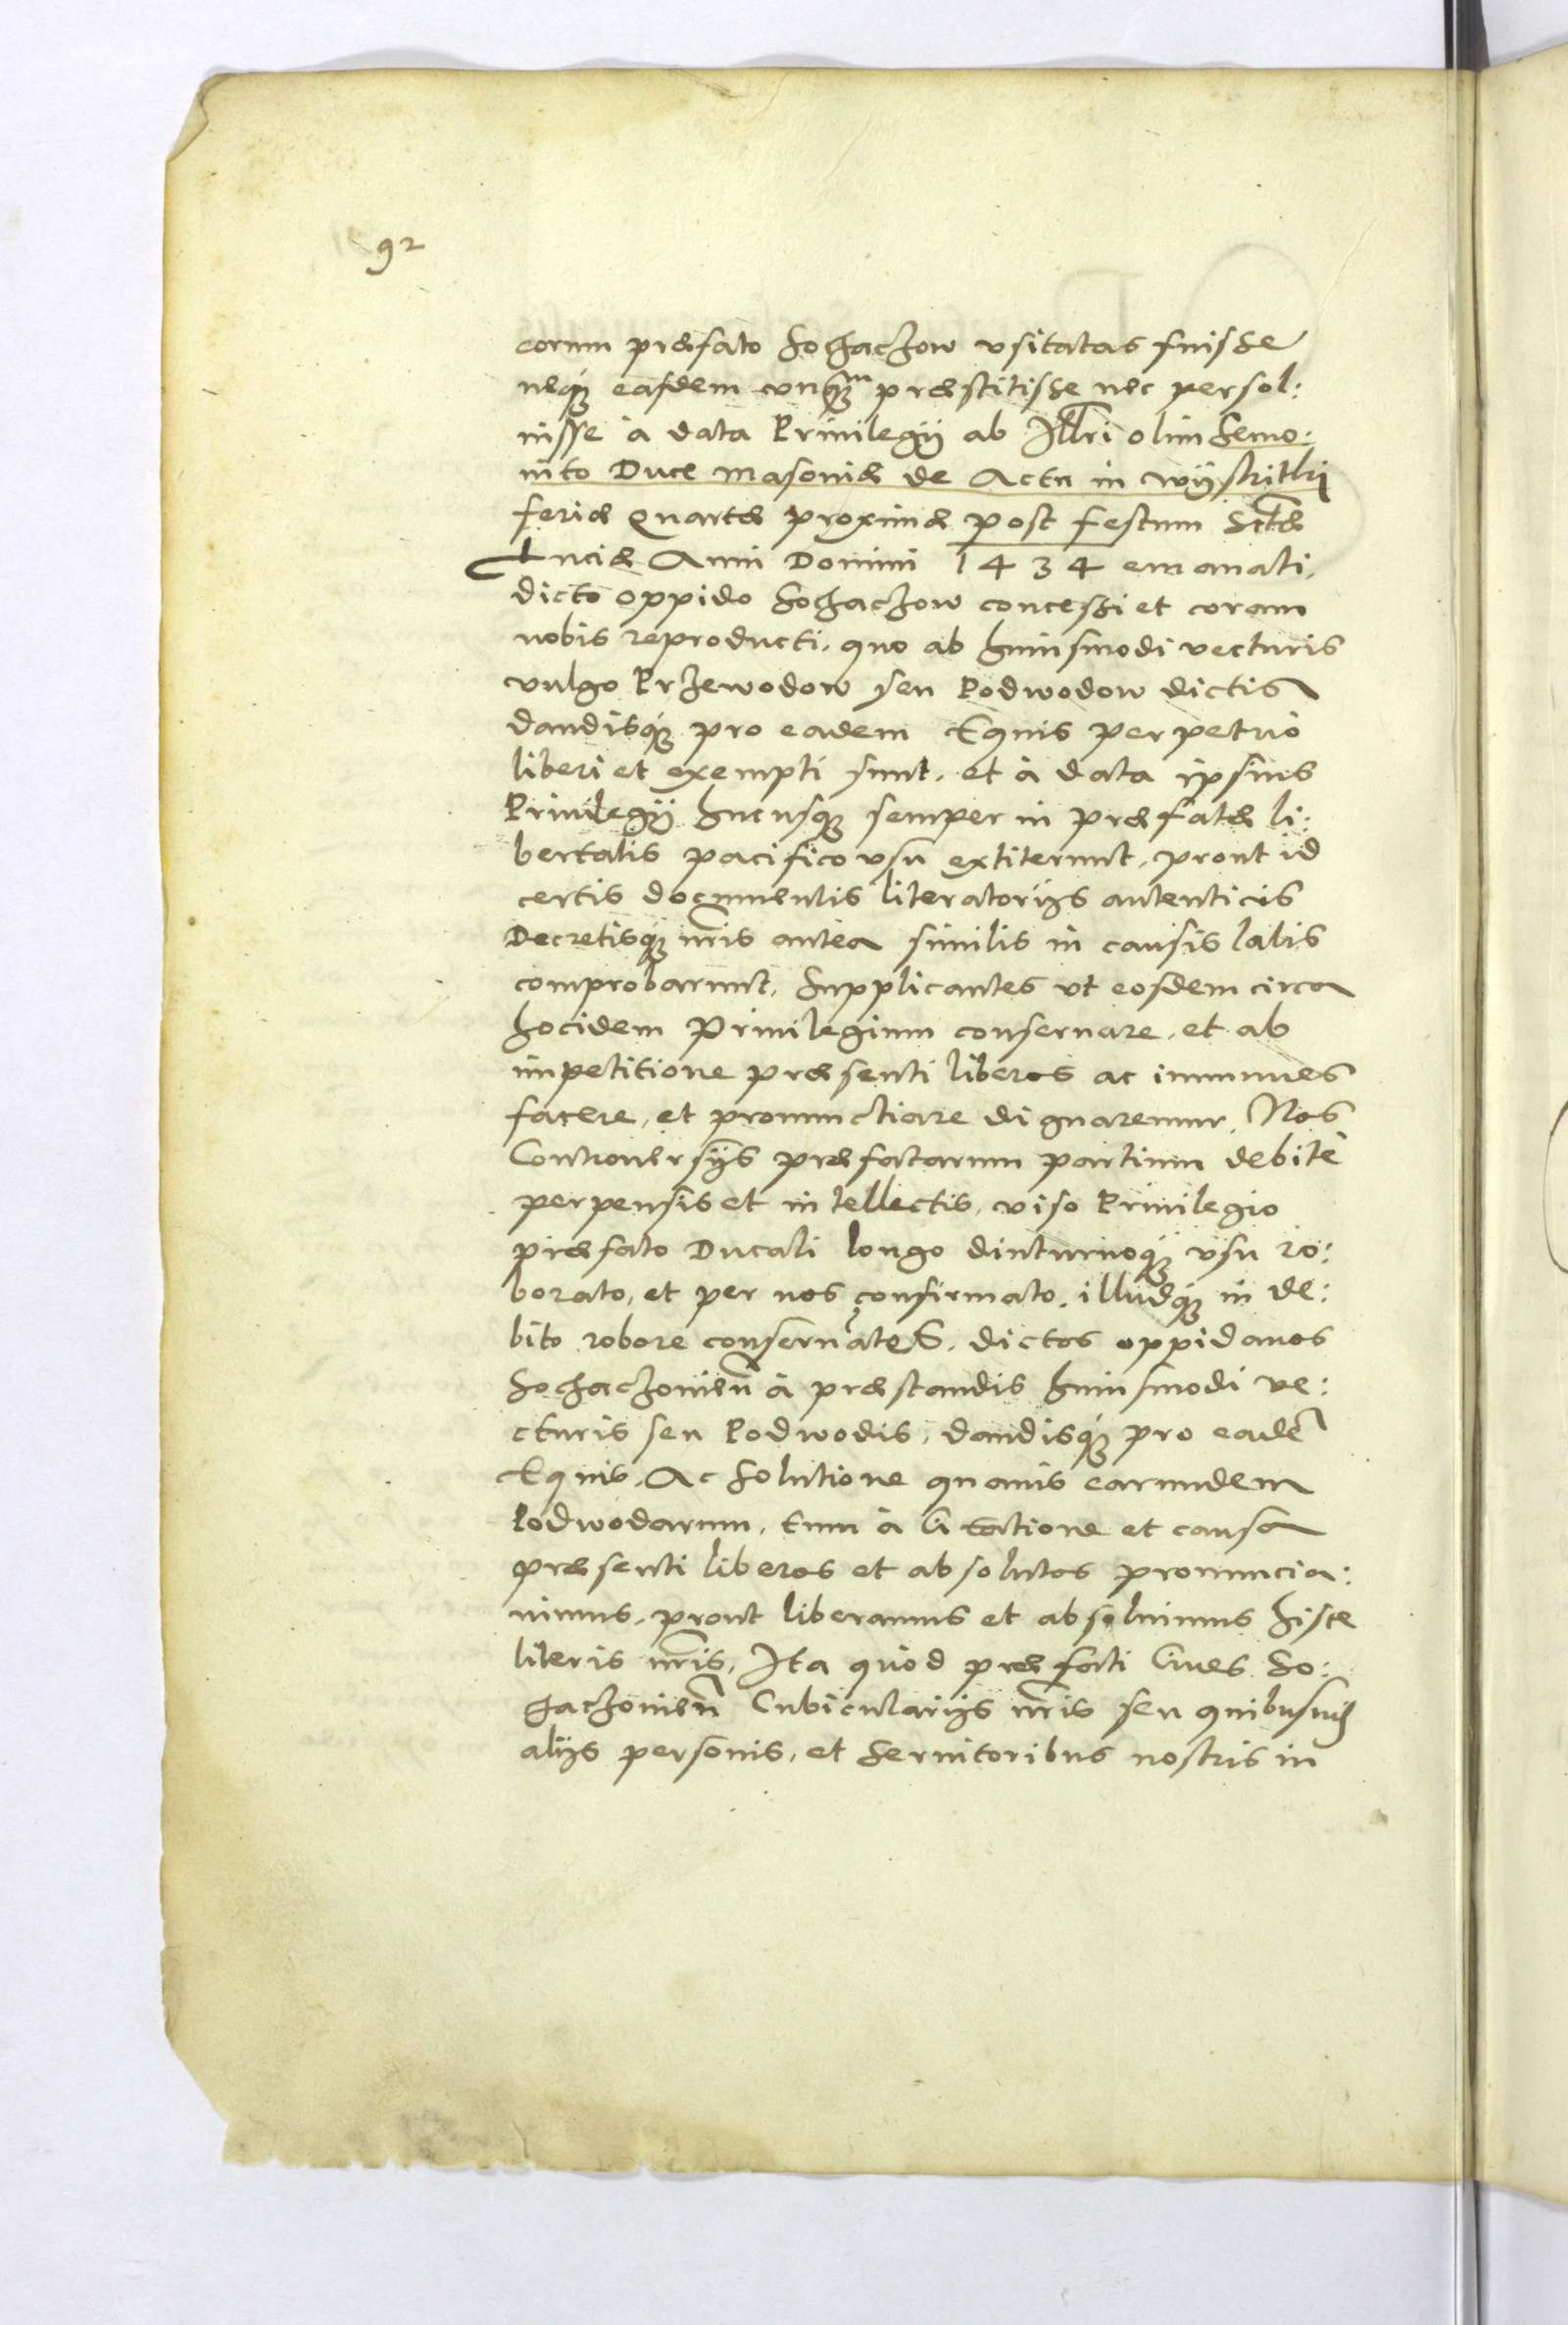 92
eorum præfato Sochaczow vsitatas fuisse
neq́ꝫ easdem vnqꝫm præstitisse nec persol:
uisse à data Priuilegÿ ab Illri olim Semo:
uito Duce Masouiæ de Actu in Wÿskitkj
feria Quarta proxima post festum Sctæ
Luciæ Anni Domini 1434 emanati,
dicto oppido Sochaczow concessi et coram
nobis reproducti, quo ab huiusmodi vecturis
vulgo Przewodow seu Podwodow dictis
dandisq́ꝫ pro eadem Equis perpetuò
liberi et exempti sunt, et à data ipsius
Priuilegÿ hucusqꝫ semper in præfatæ li:
bertatis pacifico vsu extiterunt, prout id
certis documentis literatorÿs autenticis
Decretisq́ꝫ nris antea similis in causis latis
comprobarunt, Supplicantes vt eosdem circa
hocidem Priuilegium conseruare, et ab
impetitione præsenti liberos ac immunes
facere, et pronunctiare dignaremur. Nos
Controuersÿs præfatarum partium debitè
perpensis et intellectis, viso Priuilegio
præfato Ducali longo diuturnoq́ꝫ vsu ro:
borato, et per nos confirmato, illudq́ꝫ in de:
bito robore conseruątes, dictos oppidanos
Sochaczouień à præstandis huiusmodi ve:
cturis seu Podwodis, dandisq́ꝫ pro eadē
Equis, Ac Solutione quauis earundem
Podwodarum, tum à Citatione et causa
præsenti liberos et absolutos pronuncia:
uimus, prout liberamus et absoluimus hisce
literis nris, Ita quòd præfati Ciues So:
chaczouień Cubicularÿs nris seu quibusuis
alÿs personis, et Seruitoribus nostris in